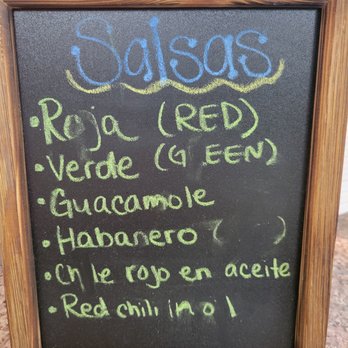 Salsas
• Roja (RED)
• Verde (G EEN)
• Guacamole
• Habanero ( )
• Ch le rojo en aceite
• Red chili in o l